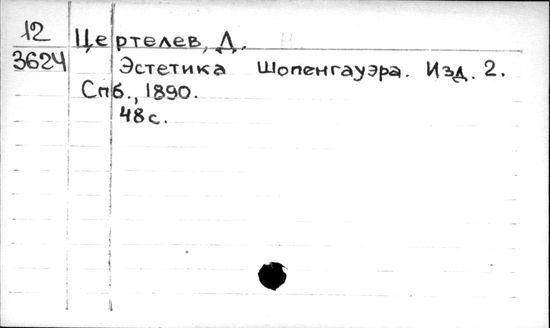 12 Цертелев, Д.
3624 Эстетика Шопенгауэра. Изд. 2.
Спб., 1890.
48 с.